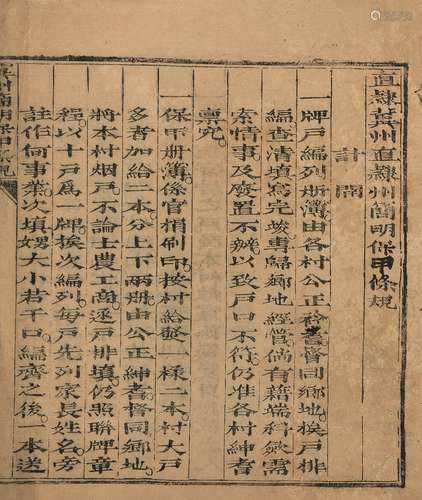 直隸冀州直隸州簡明保甲條規
計開
一牌戶編列册簿由各村公正衿耆督同鄉地挨戶排
編查清填寫完竣專歸鄉地經管倘有藉端科歛需
索情事及廢置不辦以致戶口不符仍准各村紳耆
禀究
一保甲册簿係官捐刷印按村給發一樣二本村大戶
多者加給二本分上下兩册由公正紳耆督同鄉地
將本村烟戶不論士農工商逐戶排填仍照聯牌章
程以十戶爲一牌挨次編列每戶先列家長姓名旁
註作何事業次填娚大小若干口編齊之後一本送
冀州簡明保甲條規